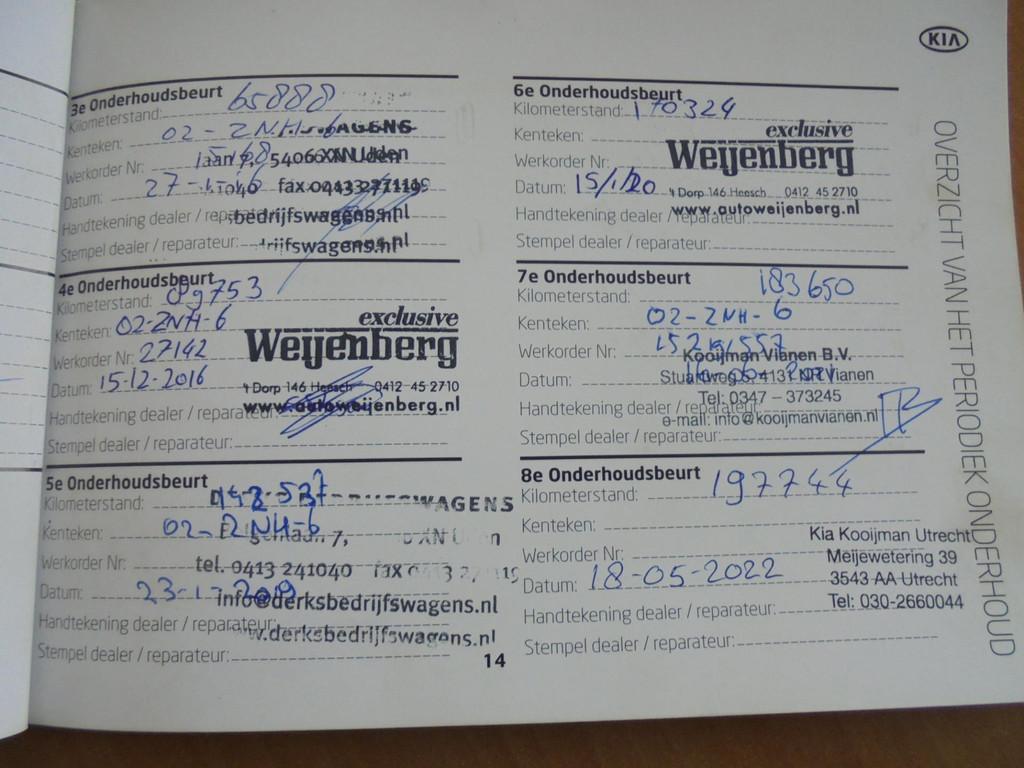 KIA
OVERZICHT VAN HET PERIODIEK ONDERHOUD
3e Onderhoudsbeurt
Kilometerstand: 65888
Kenteken: 02-ZNH-6
Werkorder Nr:
5406 XN Uden
Datum: 27-1-
fax 0413
Handtekening dealer / reparateur:
bedrijfswagens.nl
Stempel dealer / reparateur:
4e Onderhoudsbeurt
Kilometerstand: 89753
Kenteken: 02-ZNH-6
Werkorder Nr: 27142
Datum: 15-12-2016
Handtekening dealer / reparateur:
Stempel dealer / reparateur:
exclusive
Weijenberg
't Dorp 146 Heesch 0412 45 2710
www.autoweijenberg.nl
5e Onderhoudsbeurt
Kilometerstand:
Kenteken: 02-ZNH-6
Werkorder Nr:
Datum: 23-1-
Handtekening dealer / reparateur:
Stempel dealer / reparateur:
WAGENS
tel. 0413 241040 fax
info@derksbedrijfswagens.nl
w.derksbedrijfswagens.nl
14
6e Onderhoudsbeurt
Kilometerstand: 170324
Kenteken:
Werkorder Nr:
Datum: 15/1/20
Handtekening dealer / reparateur:
Stempel dealer / reparateur:
exclusive
Weijenberg
't Dorp 146 Heesch 0412 45 2710
www.autoweijenberg.nl
7e Onderhoudsbeurt
Kilometerstand: 183650
Kenteken: 02-ZNH-6
Werkorder Nr:
Datum:
Handtekening dealer / reparateur:
Stempel dealer / reparateur:
Kooijman Vianen B.V.
4131 NR Vianen
Tel: 0347 - 373245
e-mail: info@kooijmanvianen.nl
8e Onderhoudsbeurt
Kilometerstand: 197744
Kenteken:
Werkorder Nr:
Datum: 18-05-2022
Handtekening dealer / reparateur:
Stempel dealer / reparateur:
Kia Kooijman Utrecht
Meijewetering 39
3543 AA Utrecht
Tel: 030-2660044